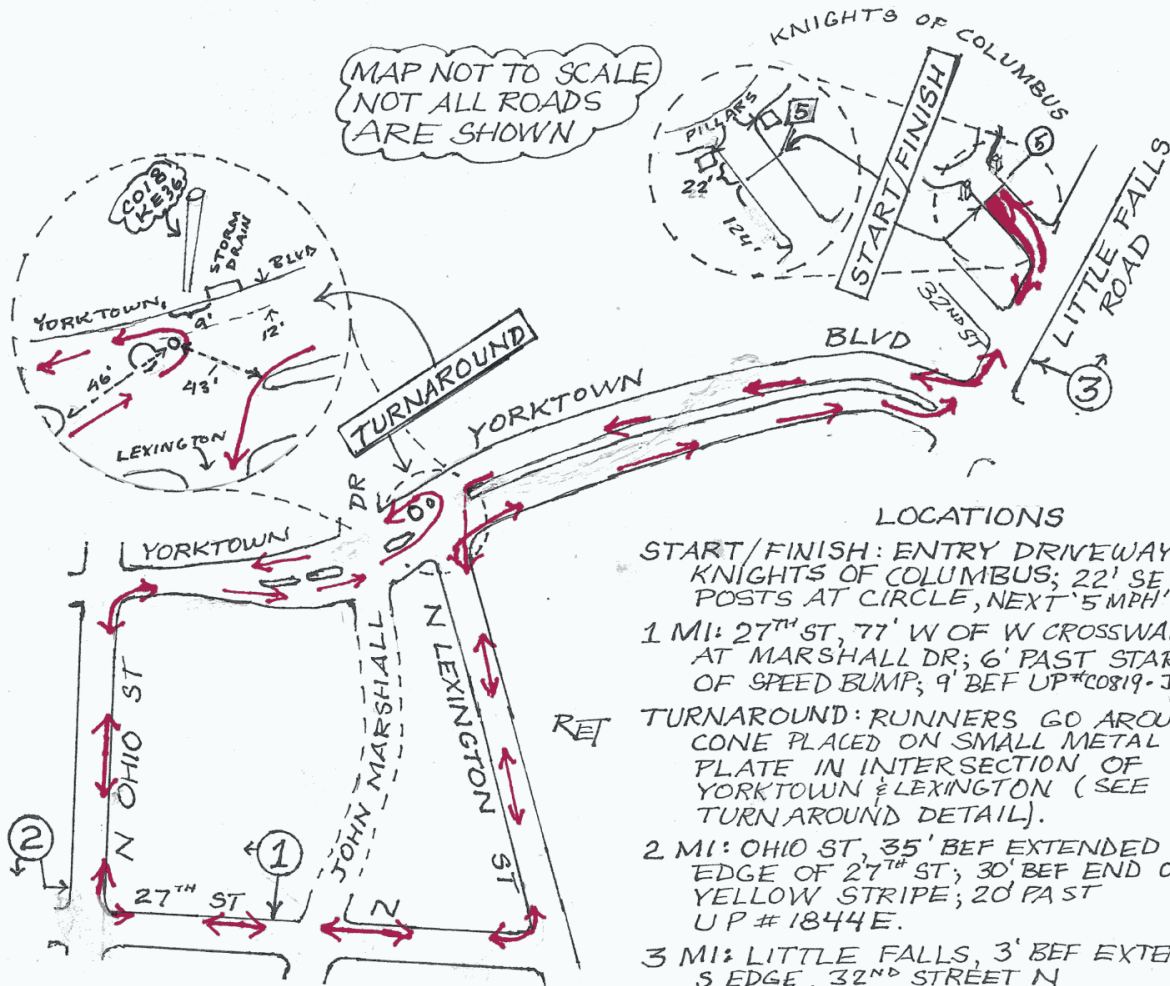 MAP NOT TO SCALE
NOT ALL ROADS
ARE SHOWN
KNIGHTS OF COLUMBUS
PILLARS
5
22'
124'
START/FINISH
5
LITTLE FALLS
ROAD
32ND ST
3
STORM
DRAIN
BLVD
YORKTOWN
9'
12'
46'
43'
LEXINGTON
TURNAROUND
YORKTOWN
BLVD
DR
YORKTOWN
N OHIO ST
JOHN MARSHALL
N
N LEXINGTON
ST
27TH ST
1
2
RET
LOCATIONS
START/FINISH: ENTRY DRIVEWAY
KNIGHTS OF COLUMBUS; 22' SE
POSTS AT CIRCLE, NEXT '5 MPH'
1 MI: 27TH ST, 77' W OF W
AT MARSHALL DR; 6' PAST
OF SPEED BUMP; 9' BEF UP #C0819.
TURNAROUND: RUNNERS GO
CONE PLACED ON SMALL METAL
PLATE IN INTERSECTION OF
YORKTOWN & LEXINGTON (SEE
TURNAROUND DETAIL).
2 MI: OHIO ST, 35' BEF EXTENDED
EDGE OF 27TH ST; 30' BEF END
YELLOW STRIPE; 20' PAST
UP # 1844E.
3 MI: LITTLE FALLS, 3' BEF
S EDGE, 32ND STREET N